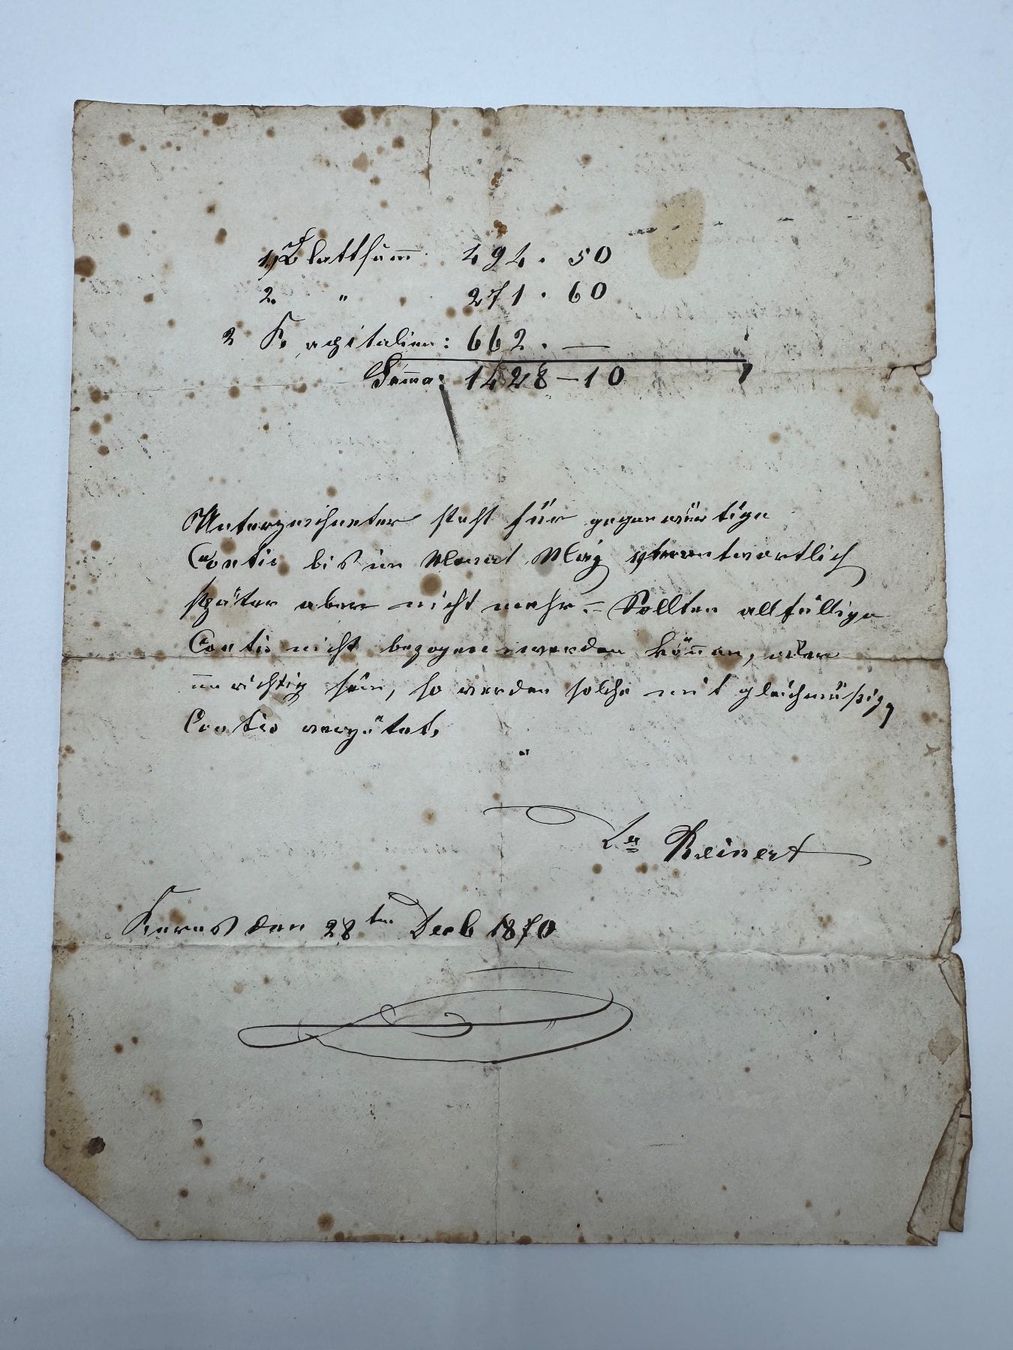 1, Blattsumm. 494 . 50
2. " 271 . 60
2 Kapitalien: 662 . —
Summa: 1428 – 10
Unterzeichneter steht für gegenwärtige
Contis bis im Monat May verantwortlich
später aber nicht mehr. = Sollten allfällige
Contis nicht bezogen werden können, oder
unrichtig sein, so werden solche mit gleichmäßig
Contis vergütet.
Reinert
Kerns den 28ten Decb 1870